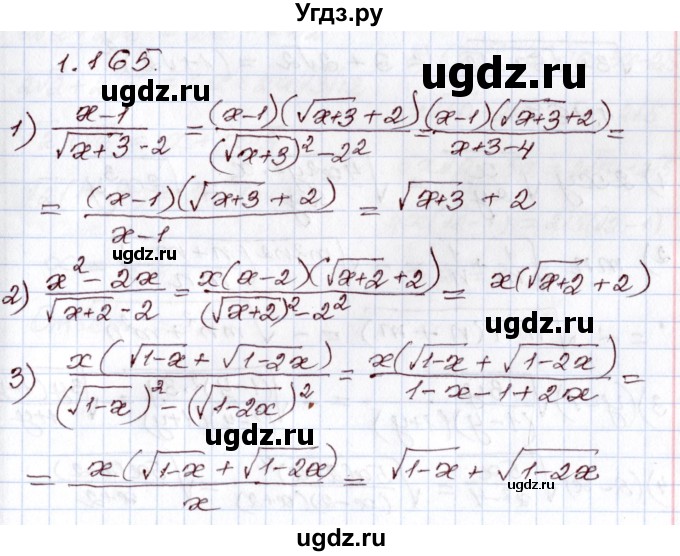 Угдз.ру
1.165.
ugdz.ru
1) (x-1)/(√(x+3) - 2) = (x-1)(√(x+3) + 2)/((√(x+3))² - 2²) = (x-1)(√(x+3) + 2)/(x+3-4) =
ugdz.ru
= (x-1)(√(x+3 + 2))/(x-1) = √(x+3) + 2
ugdz.ru
2) (x² - 2x)/(√(x+2) - 2) = x(x-2)(√(x+2) + 2)/((√(x+2))² - 2²) = x(√(x+2) + 2)
ugdz.ru
ugdz.ru
3) x(√(1-x) + √(1-2x))/((√(1-x))² - (√(1-2x))²) = x(√(1-x) + √(1-2x))/(1-x-1+2x) =
ugdz.ru
= x(√(1-x) + √(1-2x))/x = √(1-x) + √(1-2x)
ugdz.ru